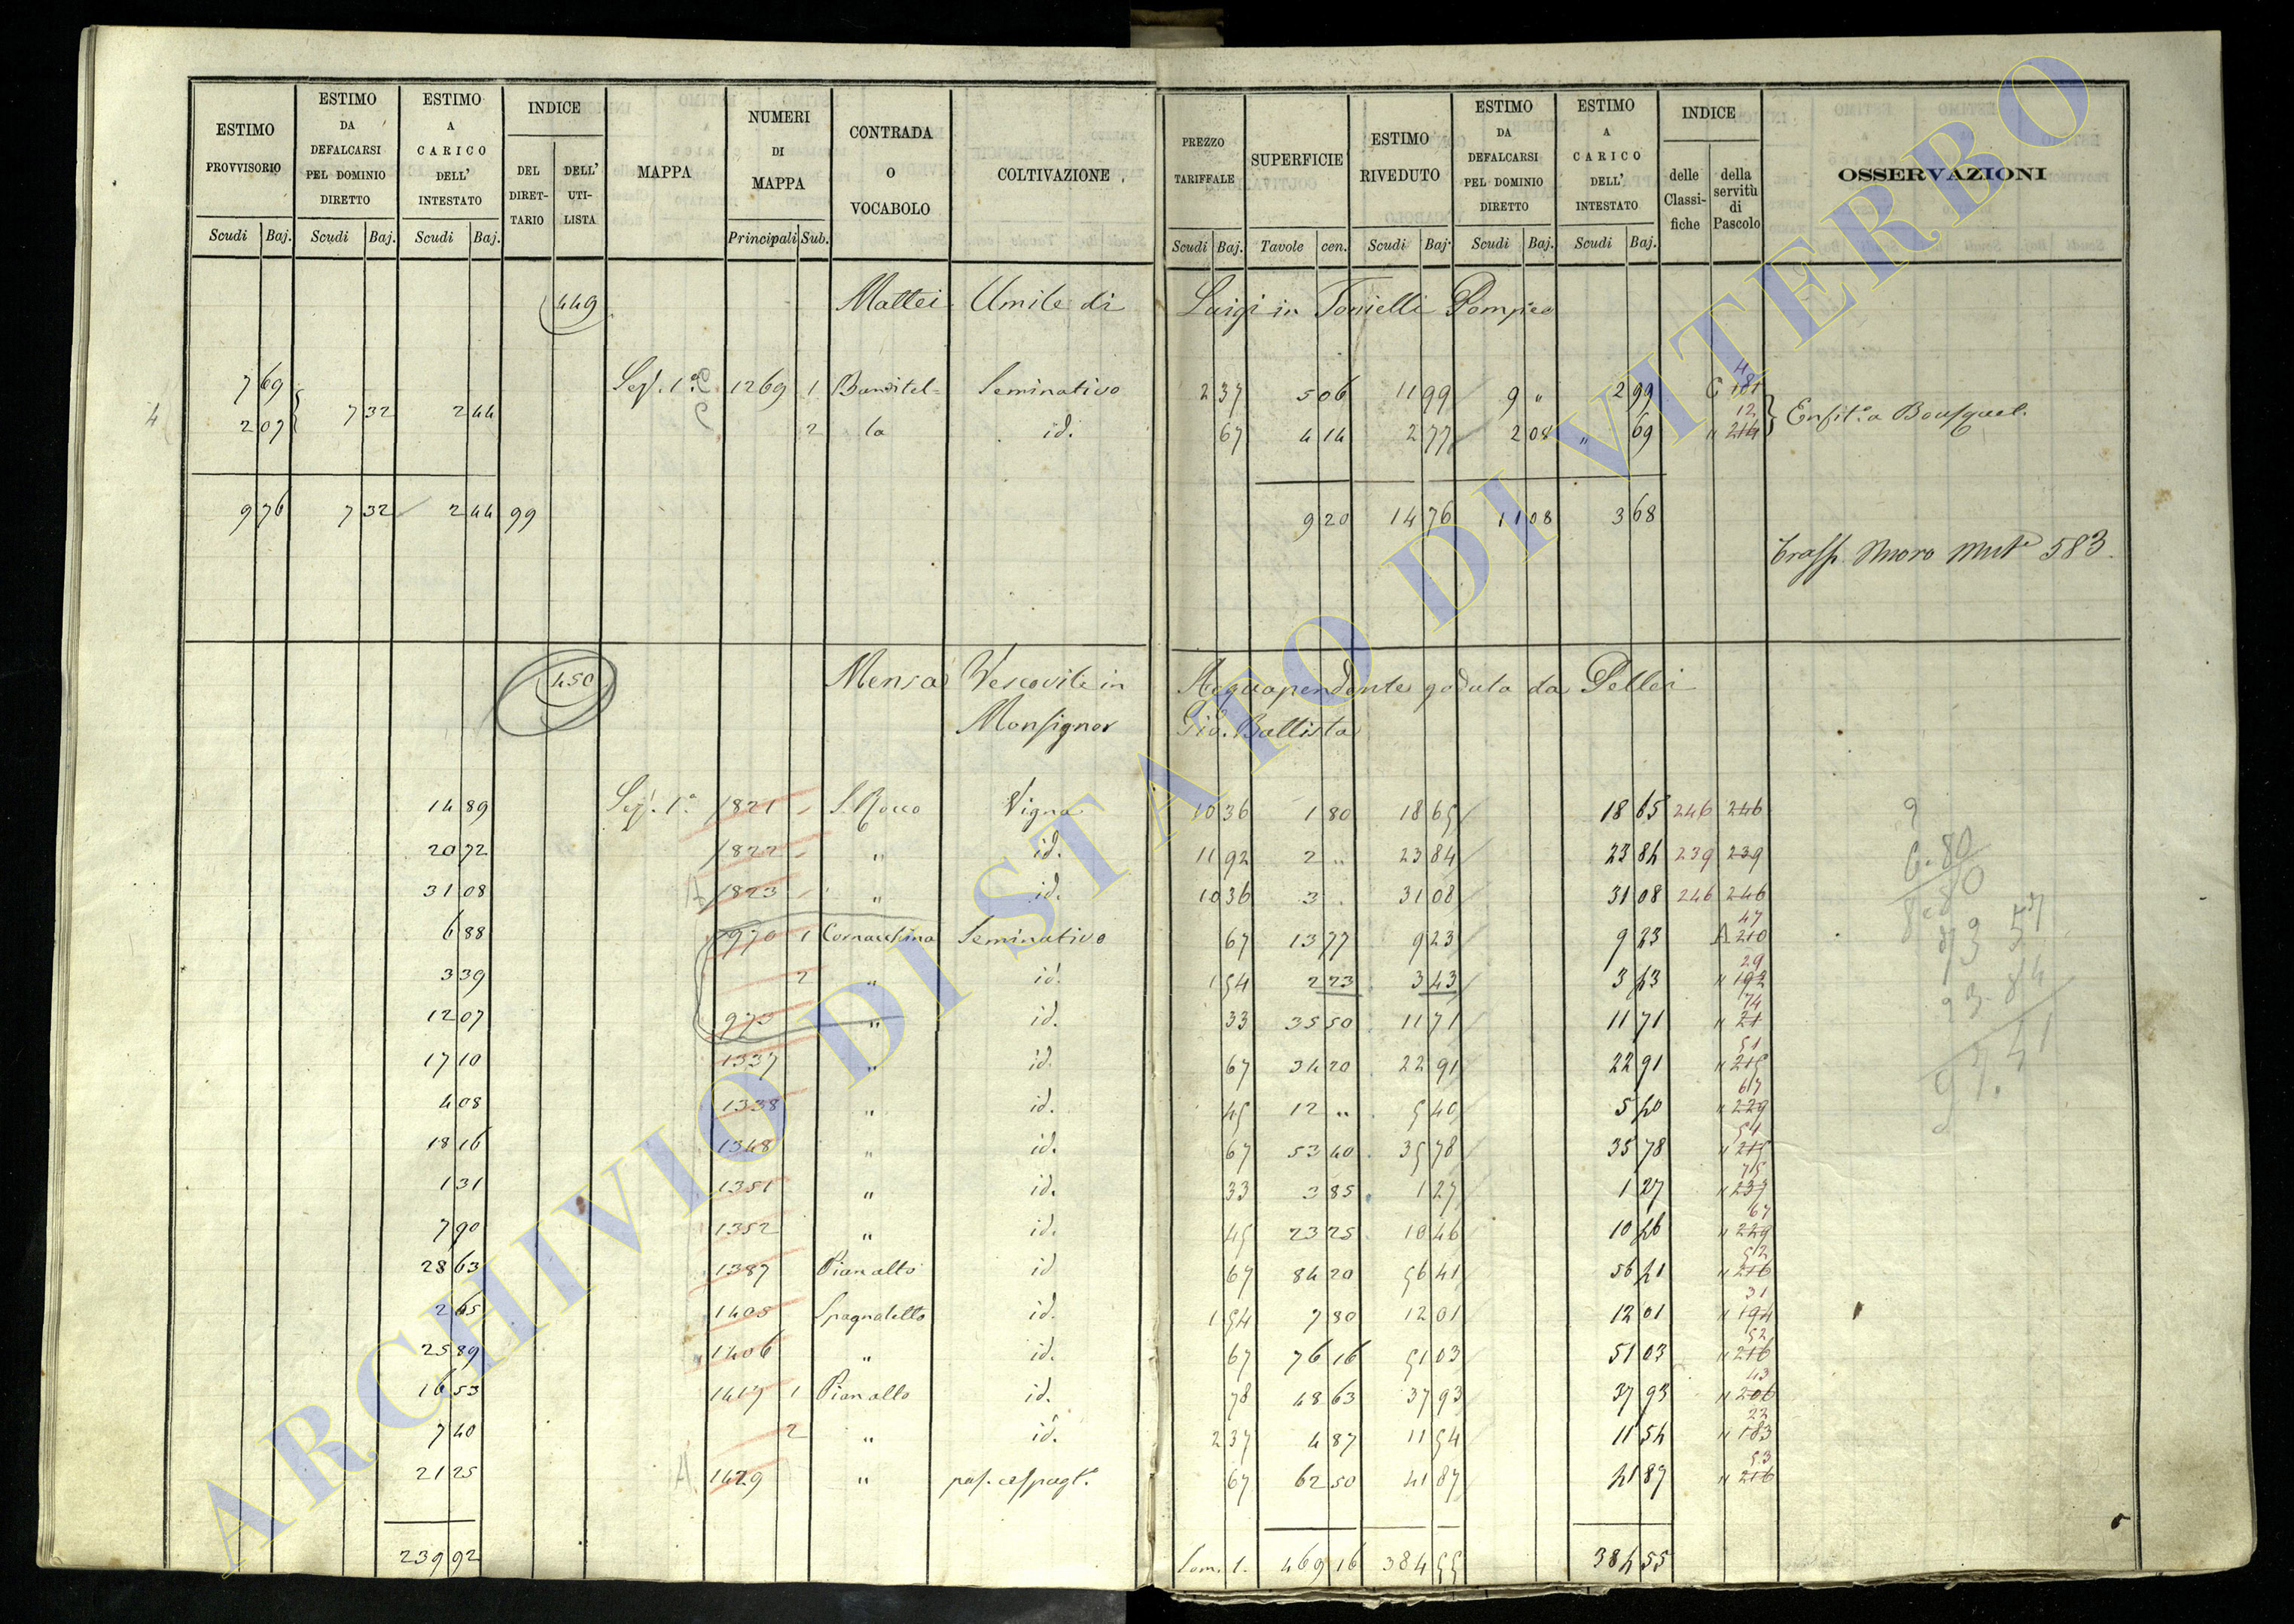 ESTIMO PROVVISORIO | ESTIMO DA DEFALCARSI PEL DOMINIO DIRETTO | ESTIMO A CARICO DELL' INTESTATO | INDICE DEL DIRET-TARIO | DELL' UTI-LISTA | MAPPA | NUMERI DI MAPPA | CONTRADA O VOCABOLO | COLTIVAZIONE | PREZZO TARIFFALE | SUPERFICIE | ESTIMO RIVEDUTO | ESTIMO DA DEFALCARSI PEL DOMINIO DIRETTO | ESTIMO A CARICO DELL' INTESTATO | INDICE delle Classi-fiche | della servitù di Pascolo | OSSERVAZIONI
Scudi Baj. | Scudi Baj. | Scudi Baj. | Principali Sub. | Scudi Baj. | Tavole cen. | Scudi Baj. | Scudi Baj. | Scudi Baj.
449 Mattei Umile di Luigi in Tonielli Pompeo
7 69 | Sez. 1ª | 1269 1 | Banditel= | Seminativo | 2 37 | 5 06 | 11 99 | 9 " | 2 99 | C 181
4 | 2 07 | 7 32 | 2 44 | 2 | la | id. | 67 | 4 14 | 2 77 | 2 08 | " 69 | 12 " 214 | Enfit. a Bousquet
9 76 | 7 32 | 2 44 | 99 | 9 20 | 14 76 | 11 08 | 3 68
583
450 Mensa Vescovile in Acquapendente goduta da Pellei
Monsignor Gio. Battista
14 89 | Sez. 1ª | 1821 | S. Rocco | Vigna | 10 36 | 1 80 | 18 65 | 18 65 | 246 | 246
20 72 | 1822 | " | id. | 11 92 | 2 " | 23 84 | 23 84 | 239 | 239
31 08 | 1823 | " | id. | 10 36 | 3 | 31 08 | 31 08 | 246 | 246
6 88 | 970 1 | Cornacchina | Seminativo | 67 | 13 77 | 9 23 | 9 23 | 47 A 210
3 39 | 2 | " | id. | 1 54 | 2 23 | 3 43 | 3 43 | 29 " 192
12 07 | 973 | " | id. | 33 | 35 50 | 11 71 | 11 71 | 74 " 21
17 10 | 1337 | " | id. | 67 | 34 20 | 22 91 | 22 91 | 51 " 215
4 08 | 1338 | " | id. | 45 | 12 " | 5 40 | 5 40 | 67 " 229
18 16 | 1348 | " | id. | 67 | 53 40 | 35 78 | 35 78 | 51 " 215
1 31 | 1351 | " | id. | 33 | 3 85 | 1 27 | 1 27 | 75 " 237
7 90 | 1352 | " | id. | 45 | 23 25 | 10 46 | 10 46 | 67 " 229
28 63 | 1387 | Pianalto | id | 67 | 84 20 | 56 41 | 56 41 | 52 " 216
2 65 | 1405 | Spagnoletto | id. | 1 54 | 7 80 | 12 01 | 12 01 | 31 " 194
25 89 | 1406 | " | id. | 67 | 76 16 | 51 03 | 51 03 | 52 " 216
16 53 | 1417 1 | Pianalto | id. | 78 | 48 63 | 37 93 | 37 93 | 43 " 206
7 40 | 2 | " | id. | 2 37 | 4 87 | 11 54 | 11 54 | 22 " 183
21 25 | 1429 | " | 67 | 62 50 | 41 87 | 41 87 | 53 " 216
239 92 | Som. 1. | 469 16 | 384 55 | 384 55
ARCHIVIO DI STATO DI VITERBO